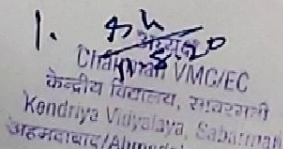 1.
अध्यक्ष
Chairman VMC/EC
केन्द्रीय विद्यालय, साबरमती
Kendriya Vidyalaya, Sabarmati
अहमदाबाद/Ahmedabad